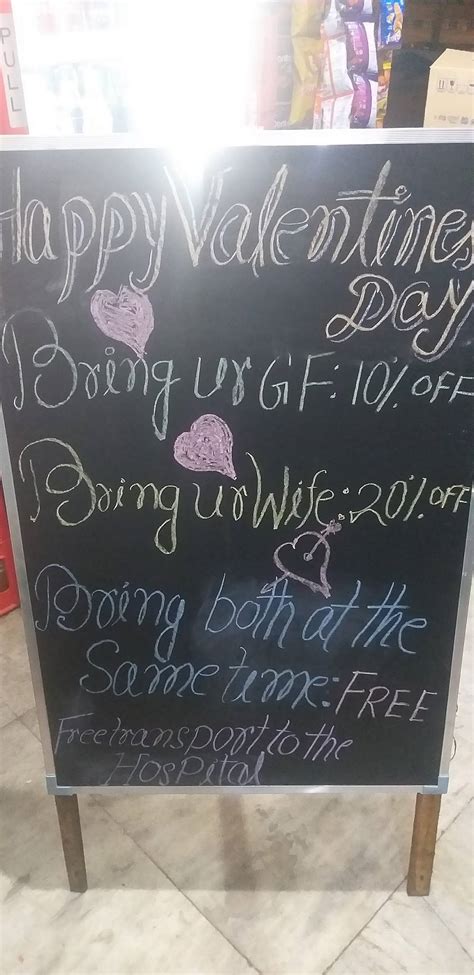 PULL
Happy Valentines
Day
Bring ur GF: 10% OFF
Bring ur Wife: 20% OFF
Bring both at the
Same time: FREE
Free transport to the
Hospital